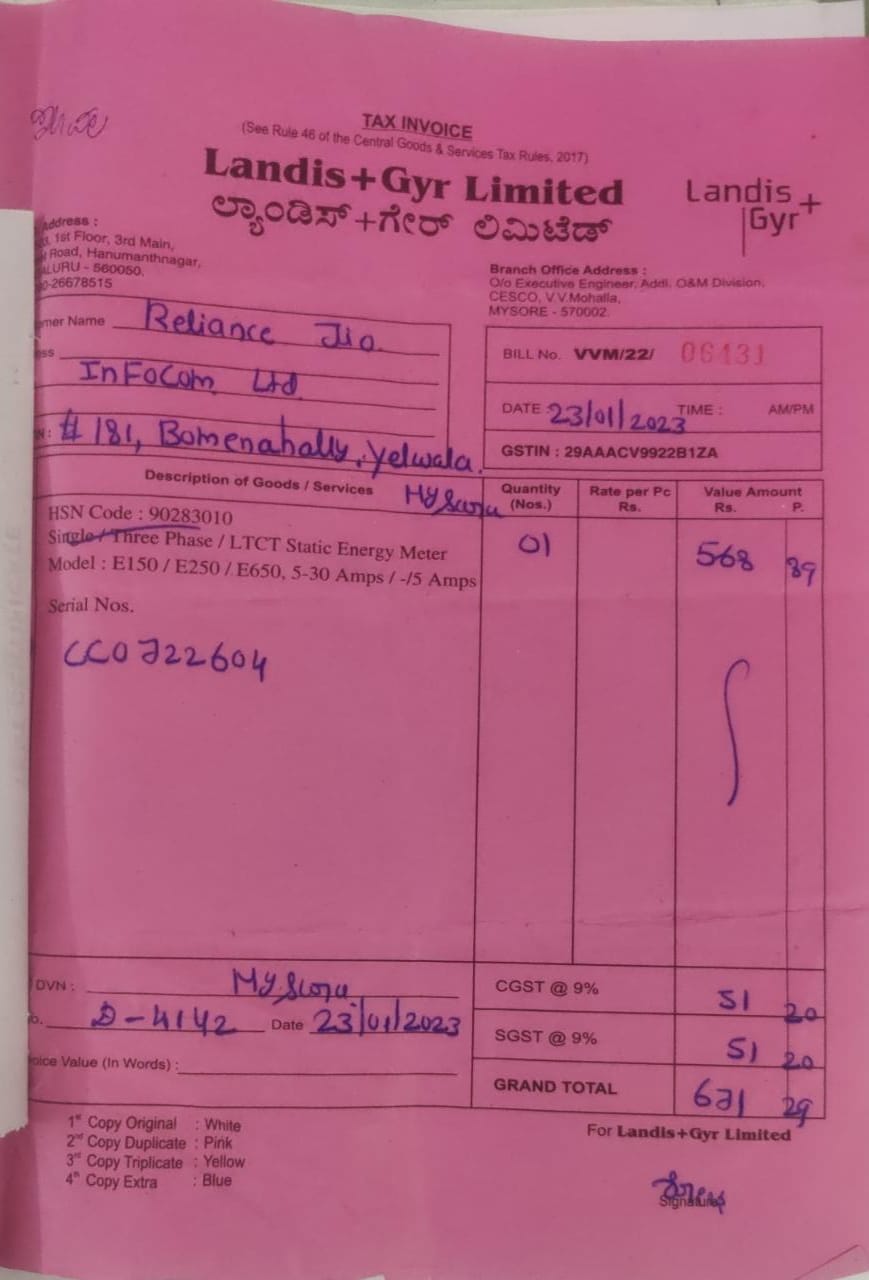 TAX INVOICE
(See Rule 46 of the Central Goods & Services Tax Rules, 2017)
Landis+Gyr Limited
ಲ್ಯಾಂಡಿಸ್+ಗೇರ್ ಲಿಮಿಟೆಡ್
Landis+
Gyr
Address :
1st Floor, 3rd Main,
Road, Hanumanthnagar,
ALURU - 560050.
0-26678515
Branch Office Address :
O/o Executive Engineer, Addl. O&M Division,
CESCO, V.V.Mohalla,
MYSORE - 570002.
mer Name Reliance Jio
ess InFocom Ltd
N : # 181, Bomenahally, Yelwala.
Mysuru
BILL No. VVM/22/ 06431
DATE : 23/01/2023 TIME : AM/PM
GSTIN : 29AAACV9922B1ZA
Description of Goods / Services Quantity (Nos.) Rate per Pc Rs. Value Amount Rs. P.
HSN Code : 90283010
Single / Three Phase / LTCT Static Energy Meter 01 568 89
Model : E150 / E250 / E650, 5-30 Amps / -/5 Amps
Serial Nos.
CCO722604
DVN : Mysuru
o. D-4142 Date 23/01/2023
oice Value (In Words) :
CGST @ 9% 51 20
SGST @ 9% 51 20
GRAND TOTAL 671 29
1st Copy Original : White
2nd Copy Duplicate : Pink
3rd Copy Triplicate : Yellow
4th Copy Extra : Blue
For Landis+Gyr Limited
Signature